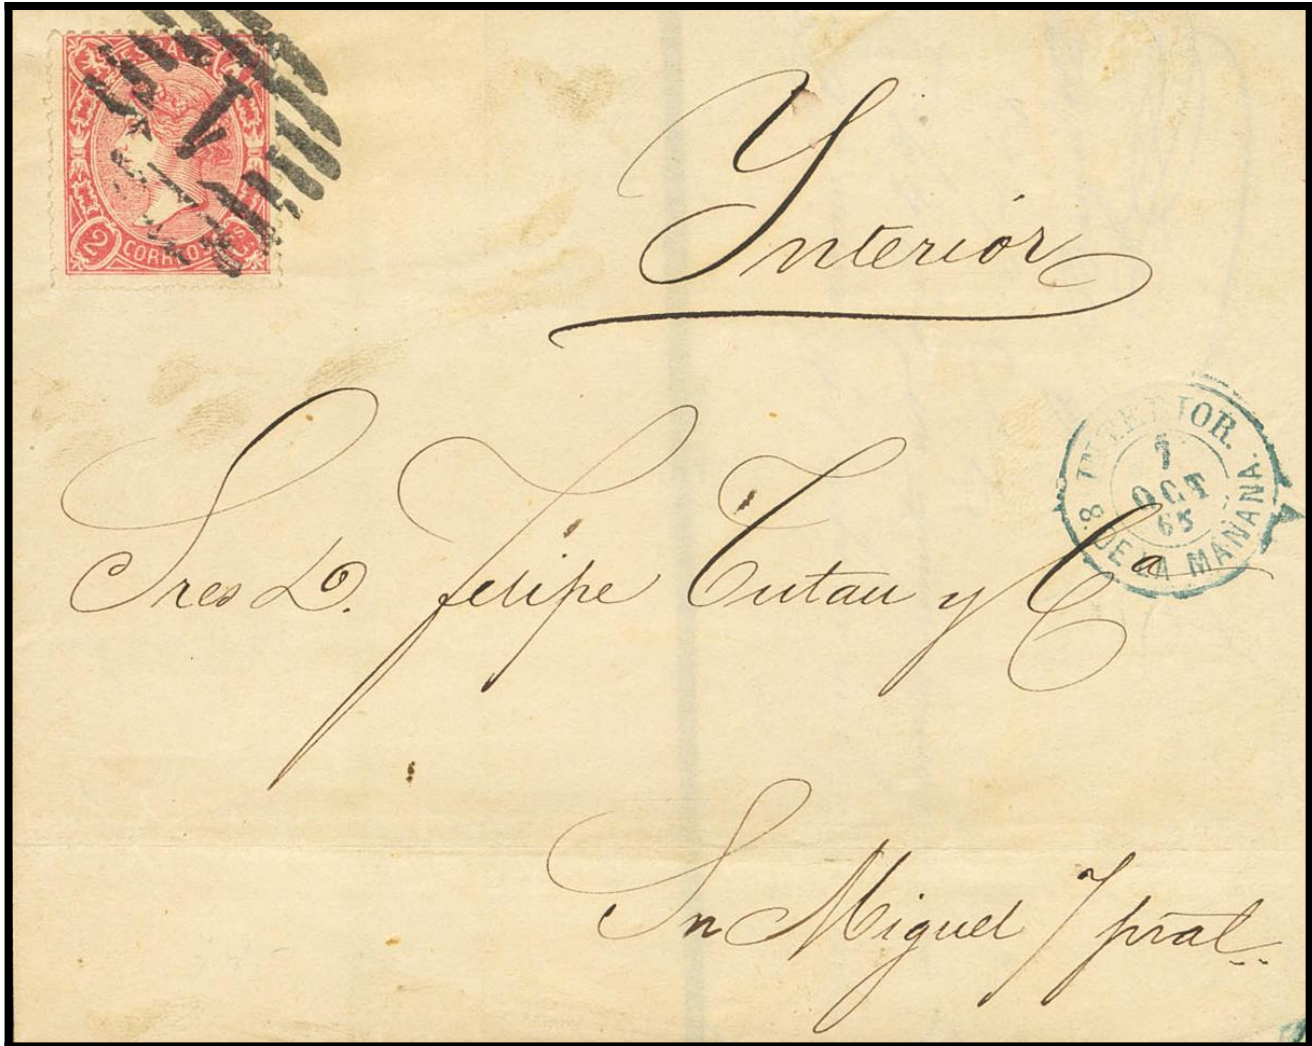 ESPAÑA
2 CORREOS Cs
1
Ynterior
INTERIOR.
1
OCT
65
8. DE LA MAÑANA.
Sres D. Felipe Tutau y Ca
Sn Miguel 7 pral..